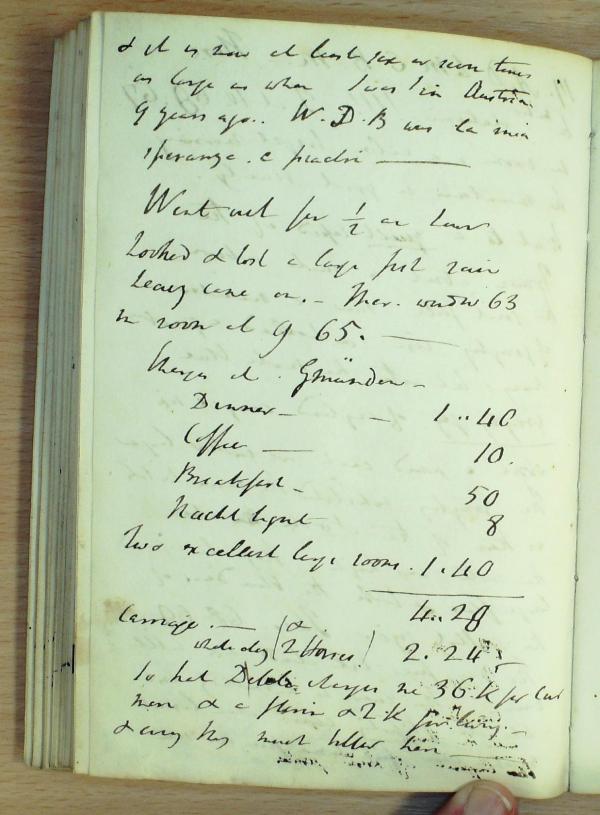 & it is now at least six or seven times
as large as when I was in Austria
9 years ago.. W.D.B was la mia
speranza. e
Went out for 1/2 an hour
Looked & lost a large fish rain
heavy came on. - Ther. window 63
in room at 9 65. —
Charges at . Gmünden -
Dinner - - 1..40
Coffee — 10.
Breakfast - 50
Nacht light 8
Two excellent large rooms . 1.40
4..28
Carriage . — &
whole day (2 Horses) 2.24
charges me 36 K for
& a florin & 2 K for
& every thing much better here —